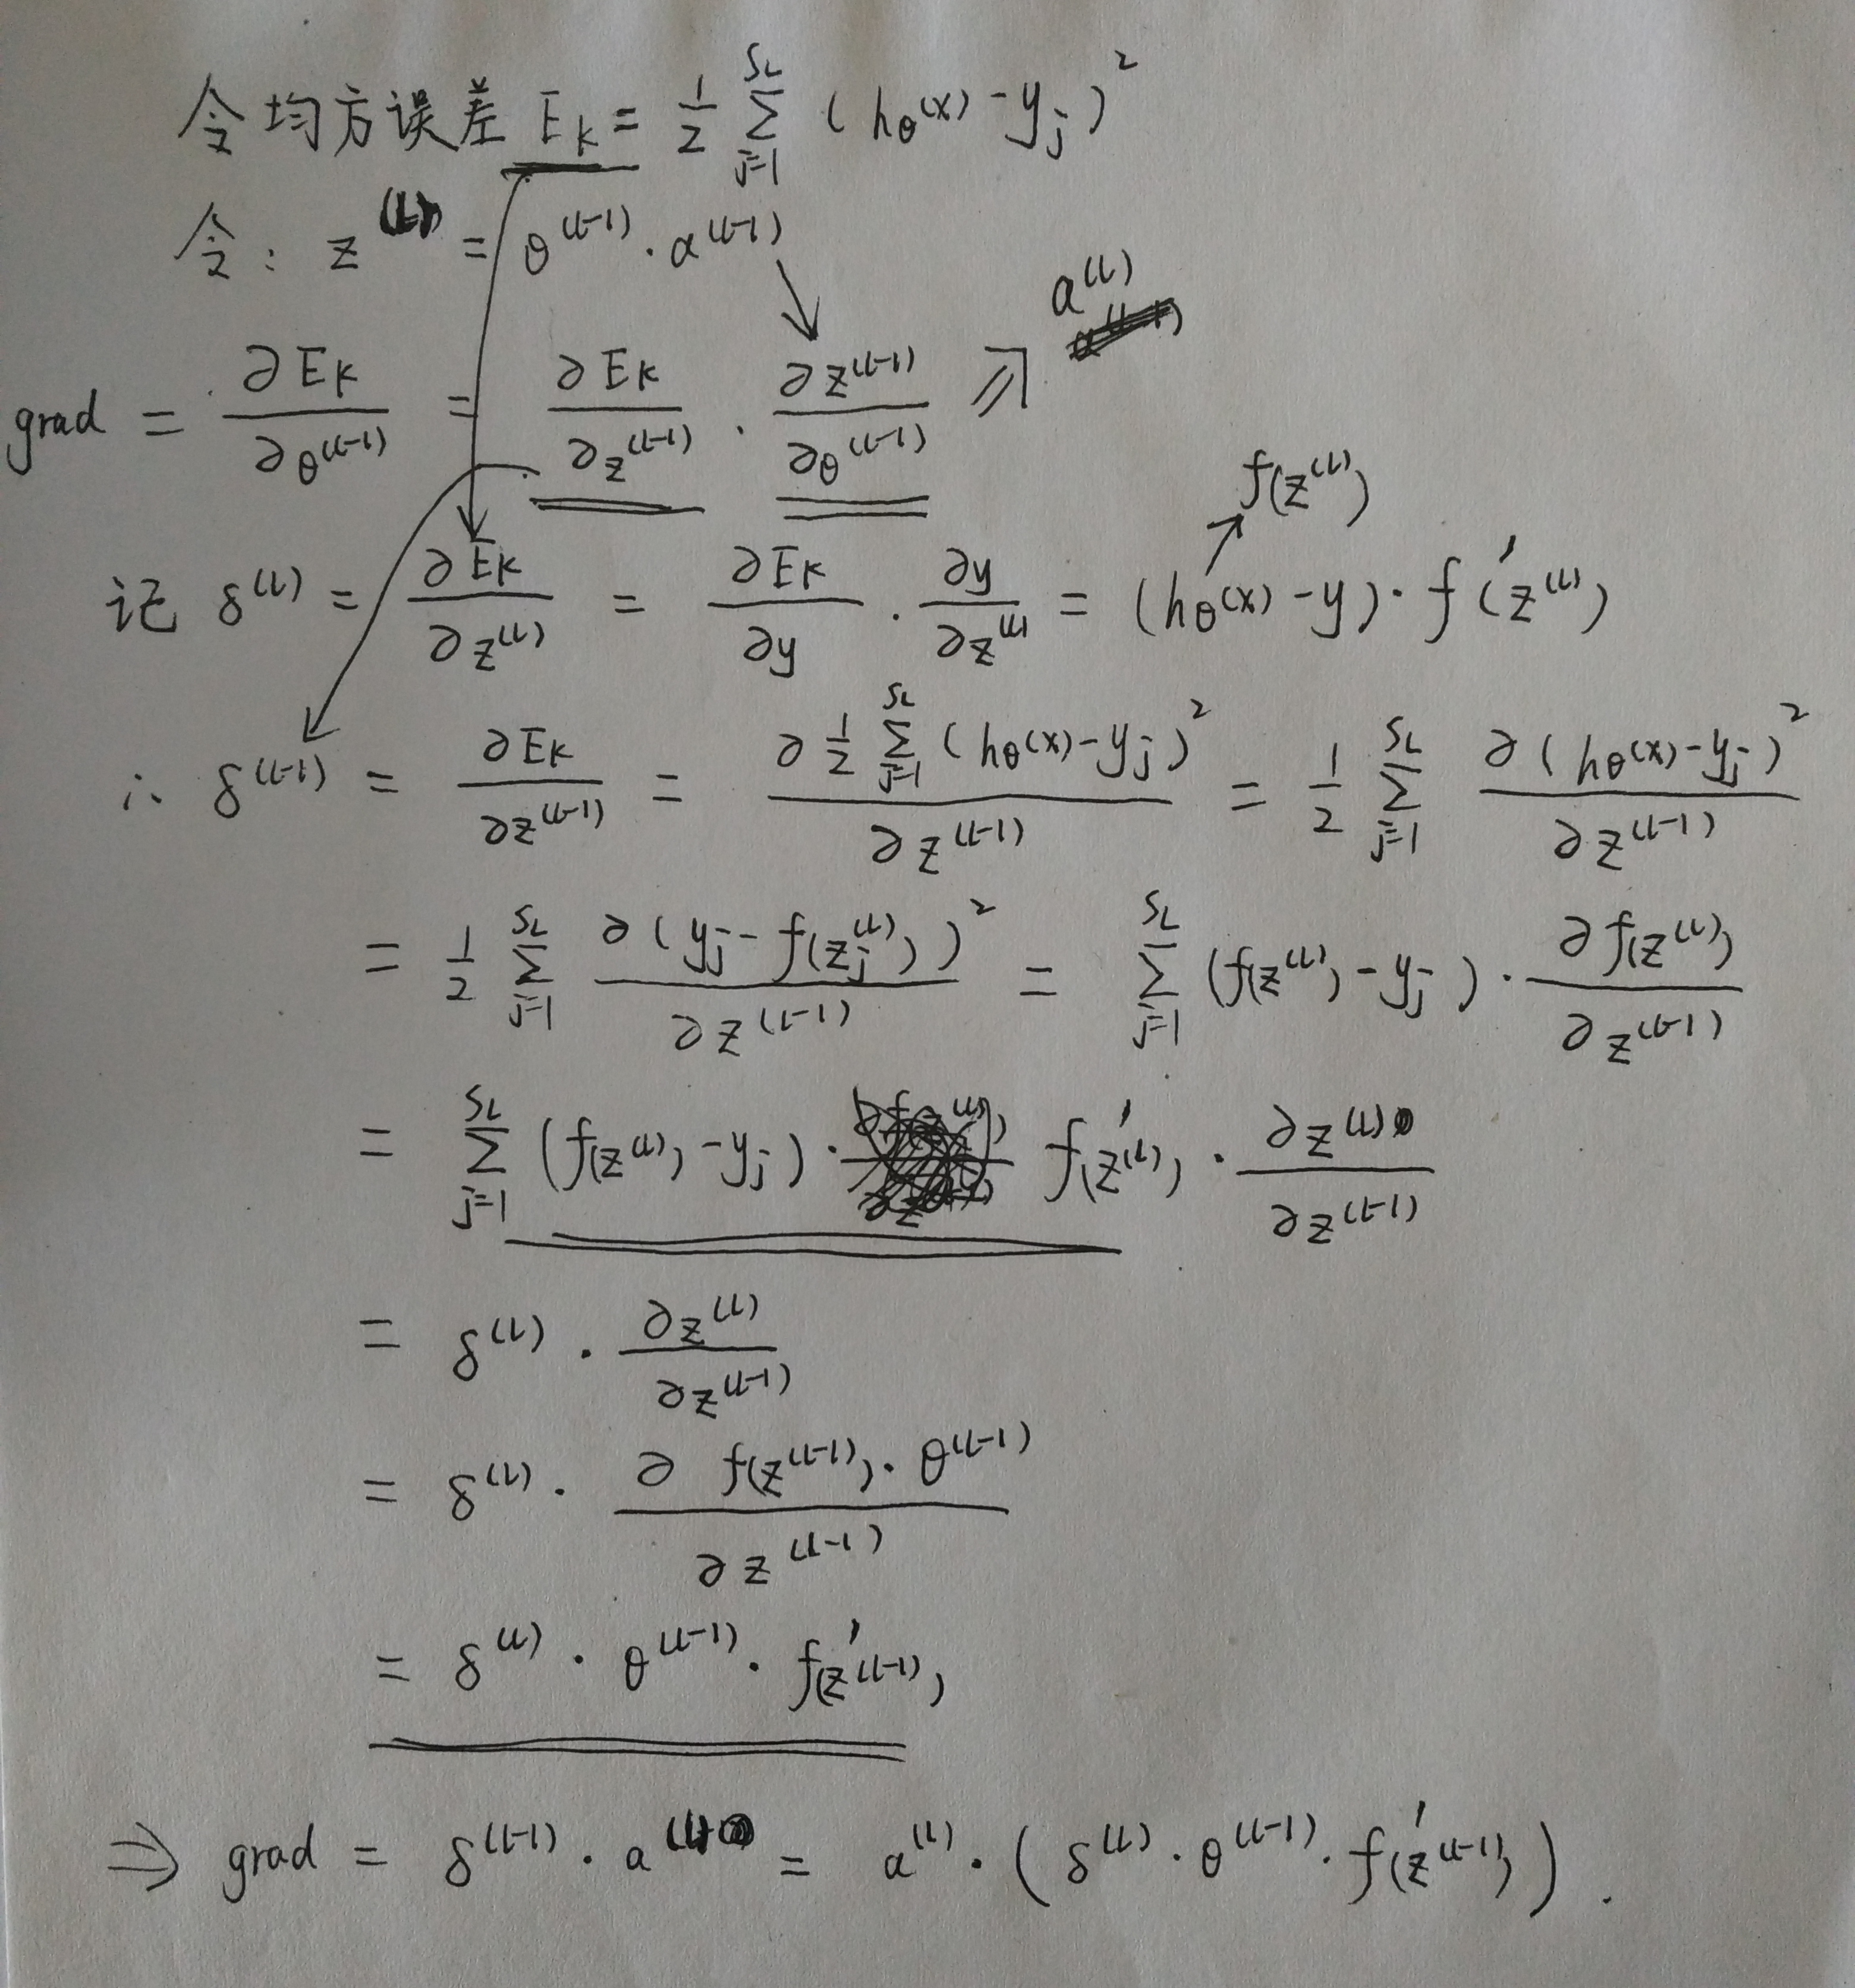 令均方误差 E_K = 1/2 Σ_{j=1}^{S_L} (h_θ(x) - y_j)²
令: z^(L) = θ^(L-1) · a^(L-1)
a^(L)
grad = ∂E_K/∂θ^(L-1) = ∂E_K/∂z^(L-1) · ∂z^(L-1)/∂θ^(L-1) ⇒
f(z^(L))
记 δ^(L) = ∂E_K/∂z^(L) = ∂E_K/∂y · ∂y/∂z^(L) = (h_θ(x) - y) · f'(z^(L))
∴ δ^(L-1) = ∂E_K/∂z^(L-1) = ∂ 1/2 Σ_{j=1}^{S_L} (h_θ(x) - y_j)² / ∂z^(L-1) = 1/2 Σ_{j=1}^{S_L} ∂(h_θ(x) - y_j)² / ∂z^(L-1)
= 1/2 Σ_{j=1}^{S_L} ∂(y_j - f(z_j^(L)))² / ∂z^(L-1) = Σ_{j=1}^{S_L} (f(z^(L)) - y_j) · ∂f(z^(L))/∂z^(L-1)
= Σ_{j=1}^{S_L} (f(z^(L)) - y_j) · f'(z^(L)) · ∂z^(L)/∂z^(L-1)
= δ^(L) · ∂z^(L)/∂z^(L-1)
= δ^(L) · ∂ f(z^(L-1)) · θ^(L-1) / ∂z^(L-1)
= δ^(L) · θ^(L-1) · f'(z^(L-1))
⇒ grad = δ^(L-1) · a^(L) = a^(L) · (δ^(L) · θ^(L-1) · f'(z^(L-1))).